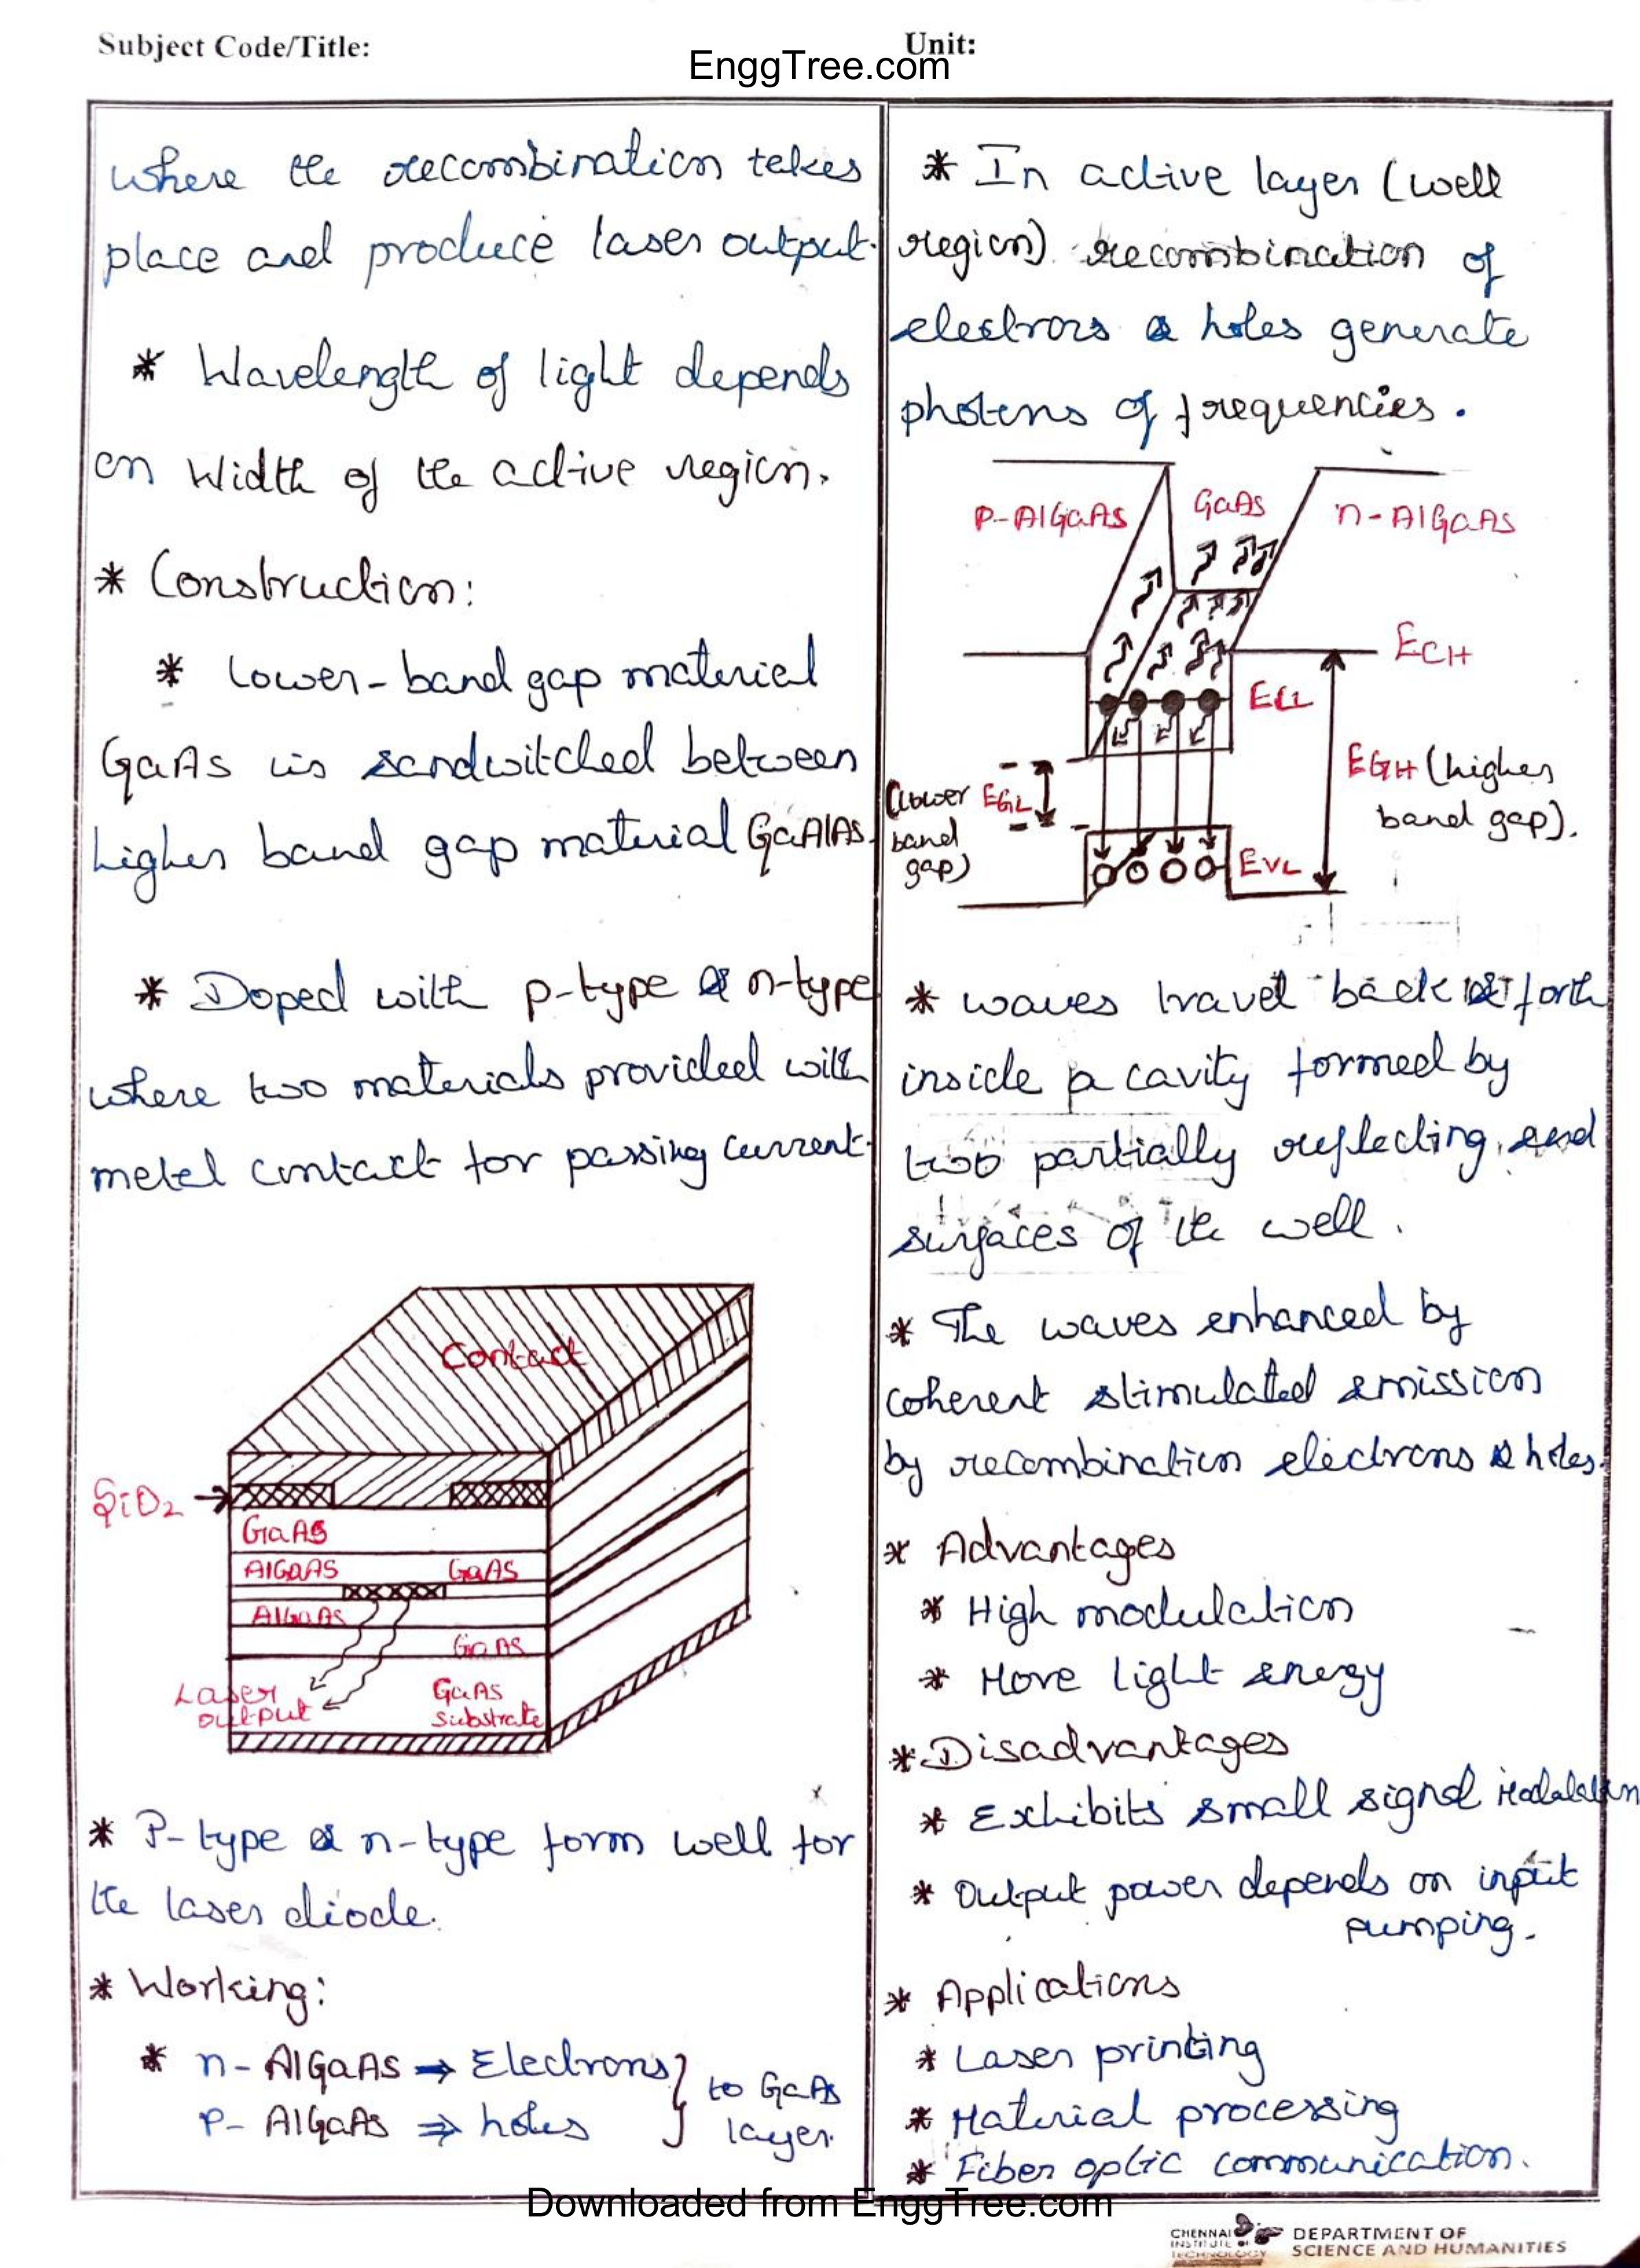 Subject Code/Title:
Unit:
EnggTree.com
where the recombination takes
place and produce laser output.
* Wavelength of light depends
on width of the active region.
* Construction:
* Lower-band gap material
GaAs is sandwitched between
higher band gap material GaAlAs.
* Doped with p-type & n-type
where two materials provided with
metal contact for passing current.
Contact
SiO2
GaAs
AlGaAS GaAS
AlGaAs
GaAs
Laser
output
GaAs
Substrate
* P-type & n-type form well for
the laser diode.
* Working:
* n- AlGaAs → Electrons } to GaAs
P- AlGaAs ⇒ holes } layer.
* In active layer (well
region) recombination of
electrons & holes generate
photons of frequencies.
P-AlGaAs GaAs n-AlGaAs
ECH
ECL
EGH (higher
band gap).
(lower EGL
band
gap)
EVL
* waves travel back & forth
inside a cavity formed by
two partially reflecting end
surfaces of the well.
* The waves enhanced by
coherent stimulated emission
by recombination electrons & holes.
* Advantages
* High modulation
* More light energy
* Disadvantages
* Exhibits small signal modulation
* Output power depends on input
pumping.
* Applications
* Laser printing
* Material processing
* Fiber optic communication.
Downloaded from EnggTree.com
CHENNAI
INSTITUTE OF
TECHNOLOGY
DEPARTMENT OF
SCIENCE AND HUMANITIES